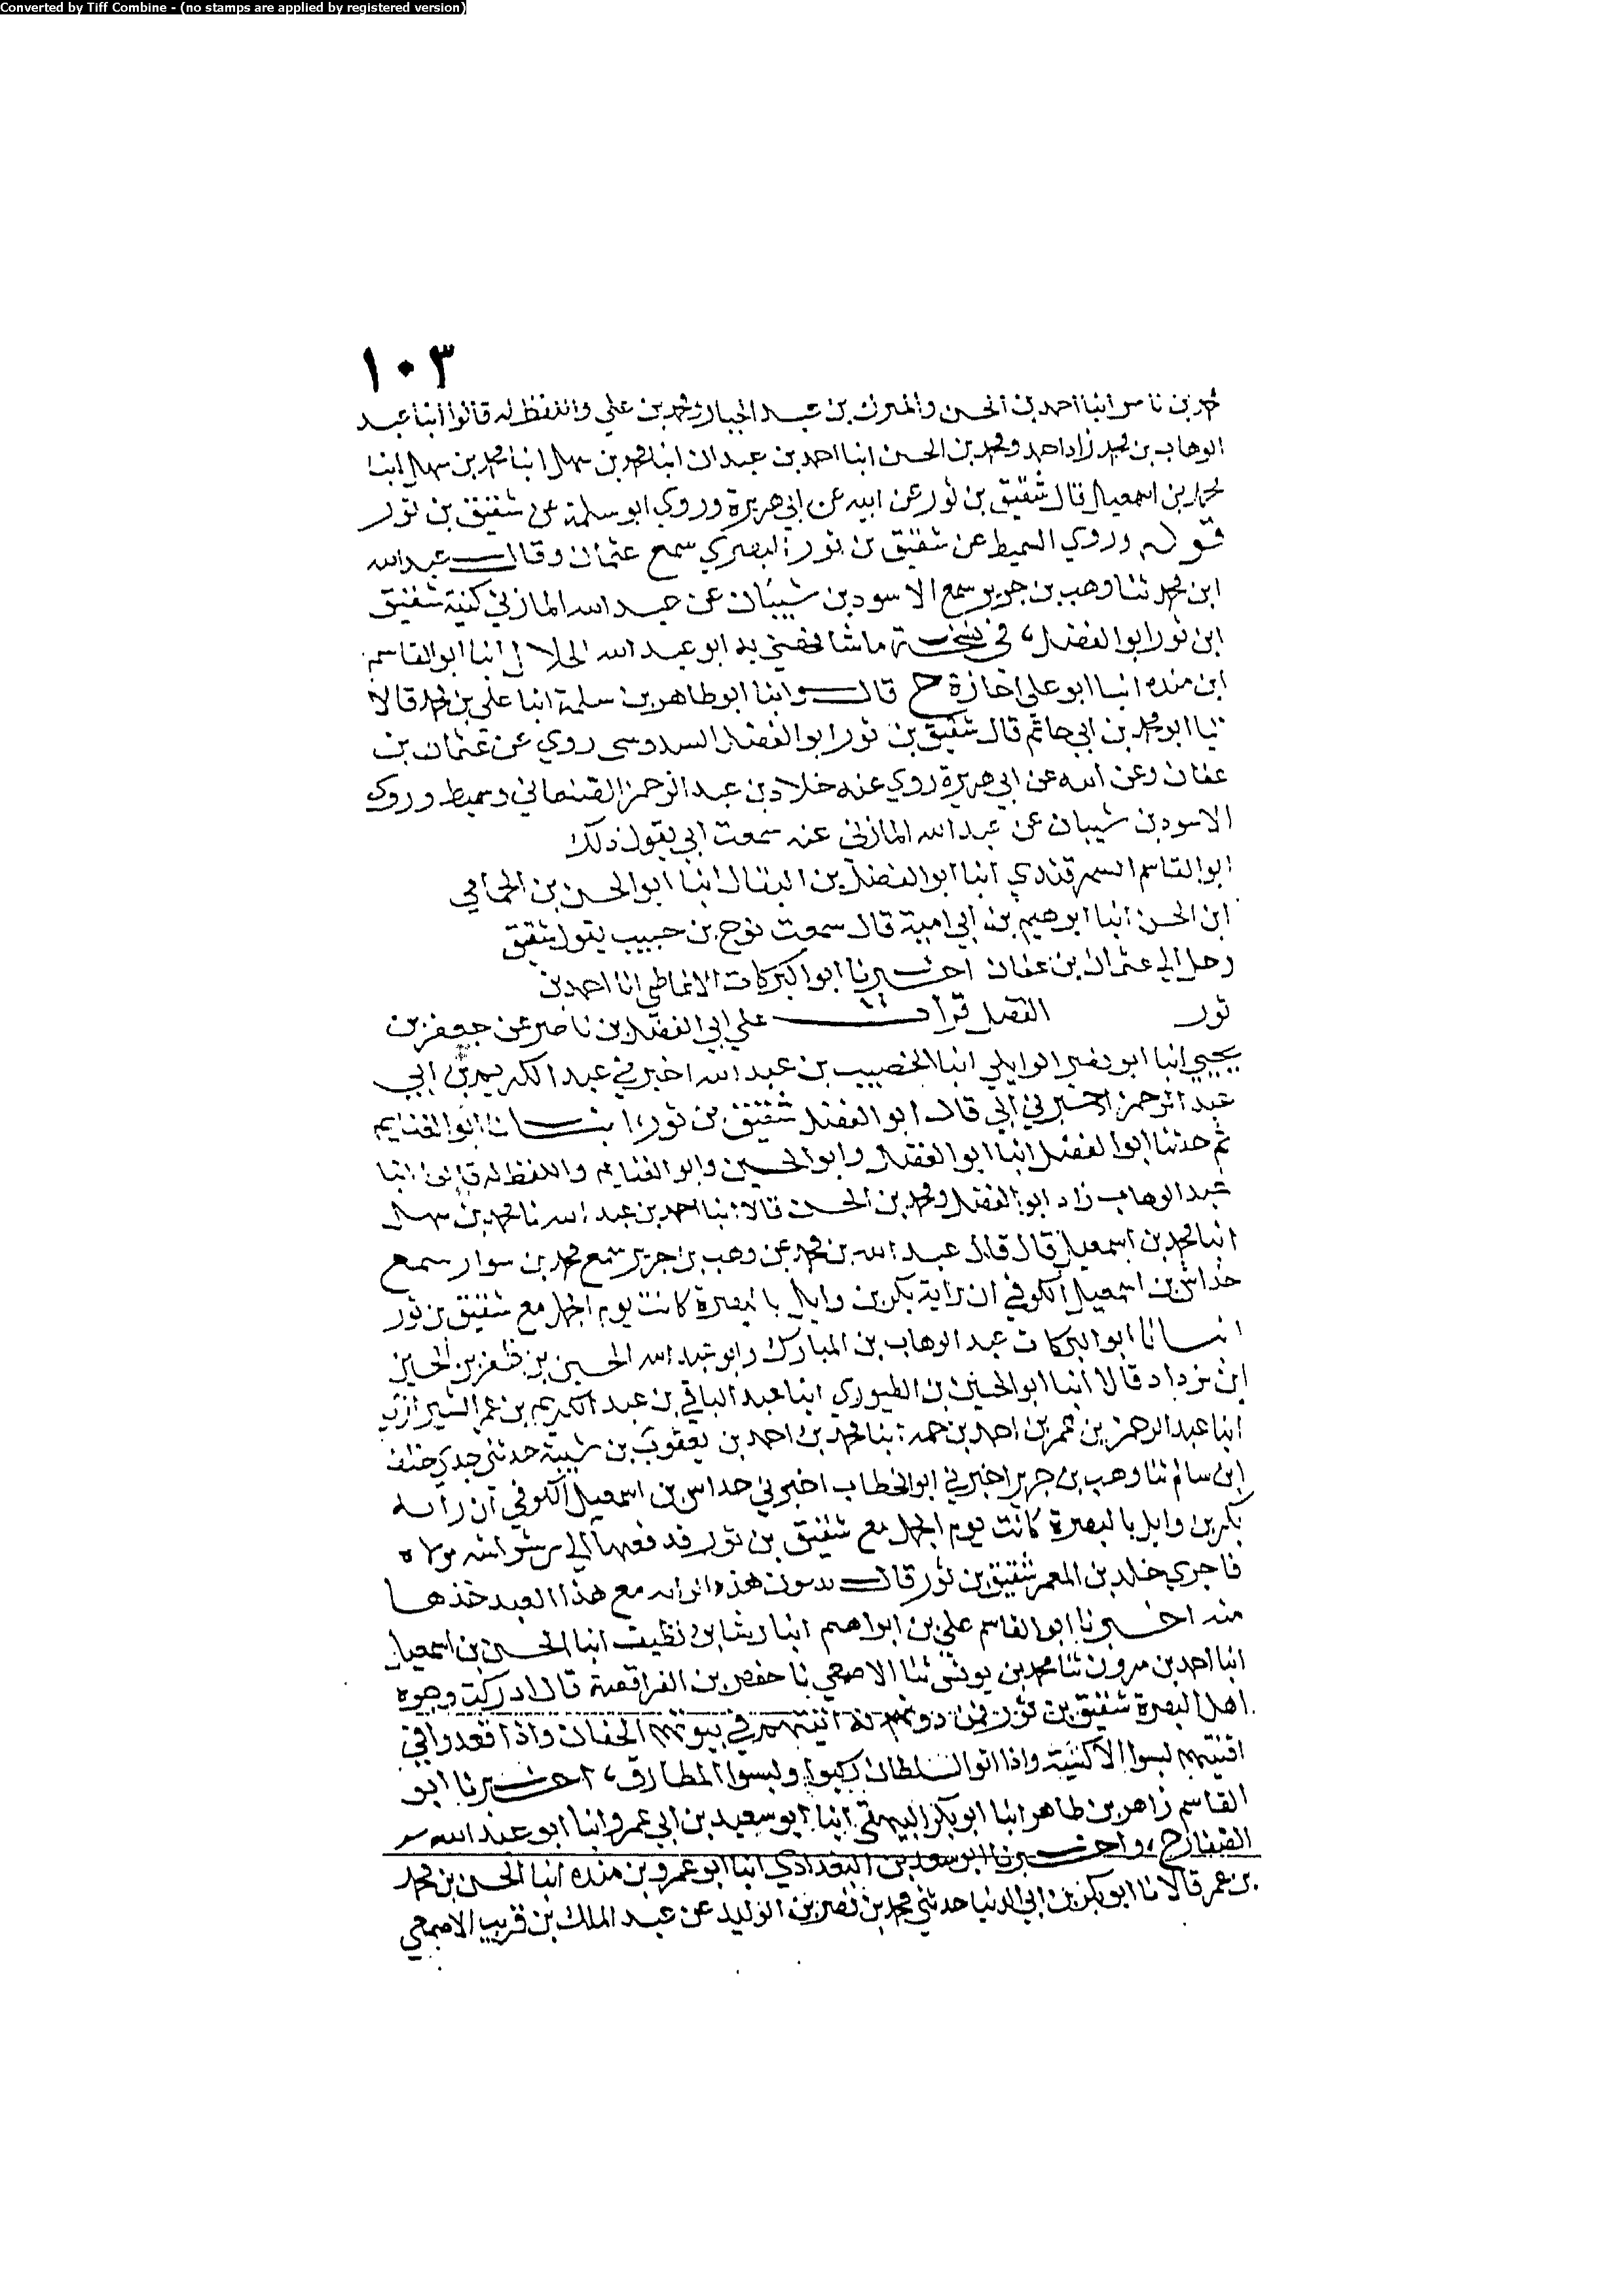 Converted by Tiff Combine - (no stamps are applied by registered version)
١٠٣
محمد بن ناصر انبا احمد بن الحسن والمبرك بن عبد الجبار ومحمد بن علي واللفظ له قالوا انبا عبد
الوهاب بن محمد زاد احمد ومحمد بن الحسن انبا احمد بن عبدان انبا محمد بن سهل انبا محمد بن سهل انبا
محمد بن اسمعيل قال شقيق بن ثور عن ابيه عن ابي هريرة وروي ابو سلمة عن شقيق بن ثور
قوله وروي السميط عن شقيق بن ثور البصري سمع عثمان وقال عبد الله
ابن محمد ثنا وهب بن جرير سمع الاسود بن شيبان عن عبد الله المازني كنية شقيق
ابن ثور ابو الفضل، في نسخة ما شافهني به ابو عبد الله الخلال انبا ابو القاسم
ابن منده انبا ابو علي اجازة ح قال وانبا ابو طاهر بن سلمة انبا علي بن محمد قالا
ثنا ابو محمد بن ابي حاتم قال شقيق بن ثور ابو الفضل السدوسي روي عن عثمان بن
عفان وعن ابيه عن ابي هريرة روي عنه خلاد بن عبد الرحمن الصنعاني وسميط وروى
الاسود بن شيبان عن عبد الله المازني عنه سمعت ابي يقول ذلك
ابو القاسم السمرقندي انبا ابو الفضل بن البقال انبا ابو الحسن بن الحمامي
ابن الحسن انبا ابرهيم بن ابي امية قال سمعت نوح بن حبيب يقول شقيق
رحل الي عثمان بن عفان اخبرنا ابو البركات الانماطي انا احمد بن
ثور الفضل قرات علي ابي الفضل بن ناصر عن جعفر بن
يحيي انبا ابو نصر الوايلي انبا الخصيب بن عبد الله اخبرني عبد الكريم بن ابي
عبد الرحمن اخبرني ابي قال ابو الفضل شقيق بن ثور، انبانا ابو الغنايم
ثم حدثنا ابو الفضل انبا ابو الفضل وابو الحسين وابو الغنايم واللفظ له قالوا انبا
عبد الوهاب زاد ابو الفضل ومحمد بن الحسن قالا انبا احمد بن عبد الله نا محمد بن سهل
انبا محمد بن اسمعيل قال قال عبد الله بن محمد عن وهب بن جرير سمع محمد بن سوار سمع
خداش بن اسمعيل الكوفي ان راية بكر بن وايل بالبصرة كانت يوم الجمل مع شقيق بن ثور
انبانا ابو البركات عبد الوهاب بن المبارك وابو عبد الله الحسين بن ظفر بن الحسين
ابن يزداد قالا انبا ابو الحسين بن الطيوري انبا عبد الباقي بن عبد الكريم بن عمر الشيرازي
انبا عبد الرحمن بن عمر بن احمد بن حمة انبا محمد بن احمد بن يعقوب بن شيبة حدثني جدي خلف
ابن سالم ثنا وهب بن جرير اخبرني ابو الخطاب اخبرني حداس بن اسمعيل الكوفي ان رايه
بكر بن وايل بالبصرة كانت يوم الجمل مع شقيق بن ثور فدفعها الي مولاه
فاجري خالد بن المعمر شقيق بن ثور قال هذه الرايه مع هذا العبد خذها
منه اخبرنا ابو القاسم علي بن ابراهيم انبا رشا بن نظيف انبا الحسن بن اسمعيل
انبا احمد بن مرون ثنا محمد بن يونس ثنا الاصمعي نا حفص بن الفرافصة قال ادركت وجوه
اهل البصرة شقيق بن ثور فمن دونهم في بيوتهم الجفان واذا قعدوا في
افنيتهم لبسوا الاكسية واذا اتوا السلطان ركبوا ولبسوا المطارق، اخبرنا ابو
القاسم زاهر بن طاهر انبا ابو بكر البيهقي انبا ابو سعيد بن ابي عمرو انبا ابو عبد الله
الصفار ح، واخبرنا ابو سعد بن البغدادي انبا ابو عمرو بن منده انبا الحسن بن محمد
بن عمر قالا نا ابو بكر بن ابي الدنيا حدثني محمد بن نصر بن الوليد عن عبد الملك بن قريب الاصمعي